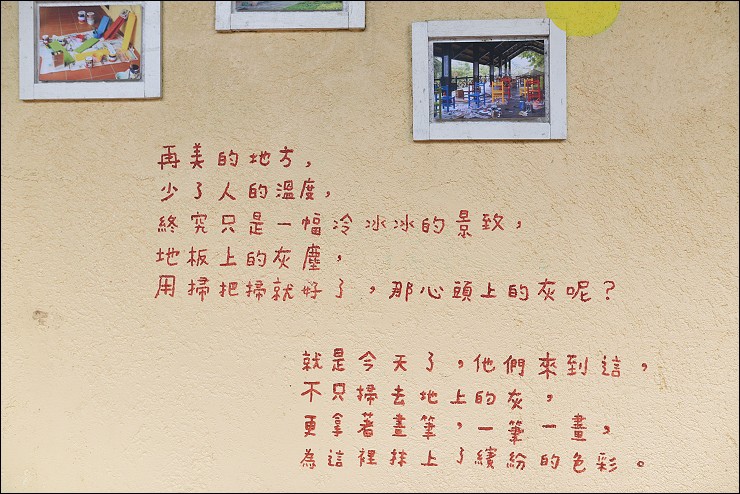 再美的地方，
少了人的溫度，
終究只是一幅冷冰冰的景致，
地板上的灰塵，
用掃把掃就好了，那心頭上的灰呢？
就是今天了，他們來到這，
不只掃去地上的灰，
更拿著畫筆，一筆一畫，
為這裡抹上了繽紛的色彩。